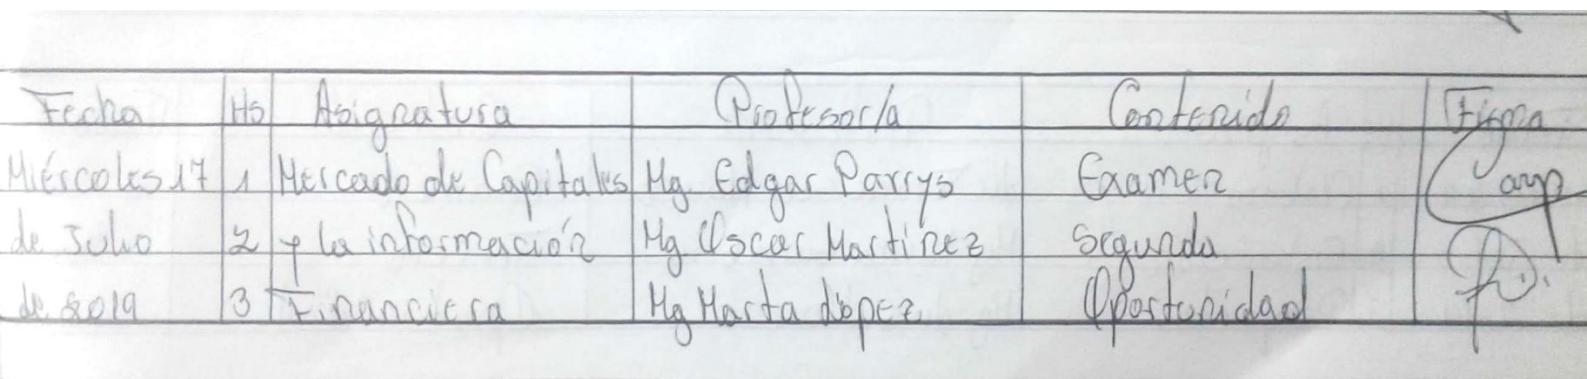 Fecha Hs Asignatura Profesor/a Contenido Firma
Miércoles 17 1 Mercado de Capitales Mg Edgar Parrys Examen
de Julio 2 y la información Mg Oscar Martínez Segunda
de 2019 3 Financiera Mg Marta López Oportunidad